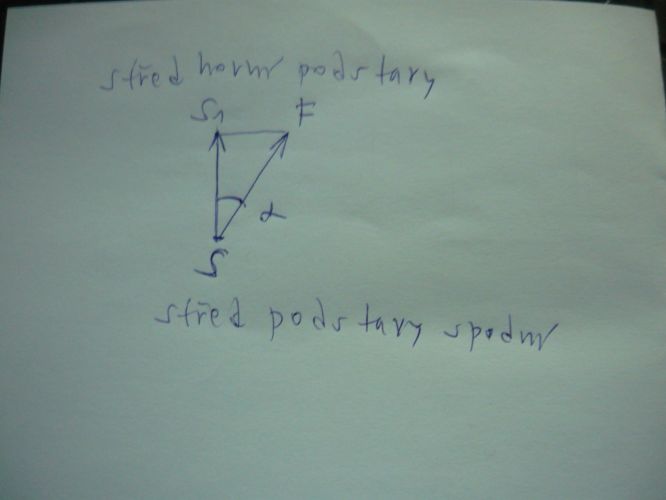 střed horní podstavy
S1 F
α
S
střed podstavy spodní